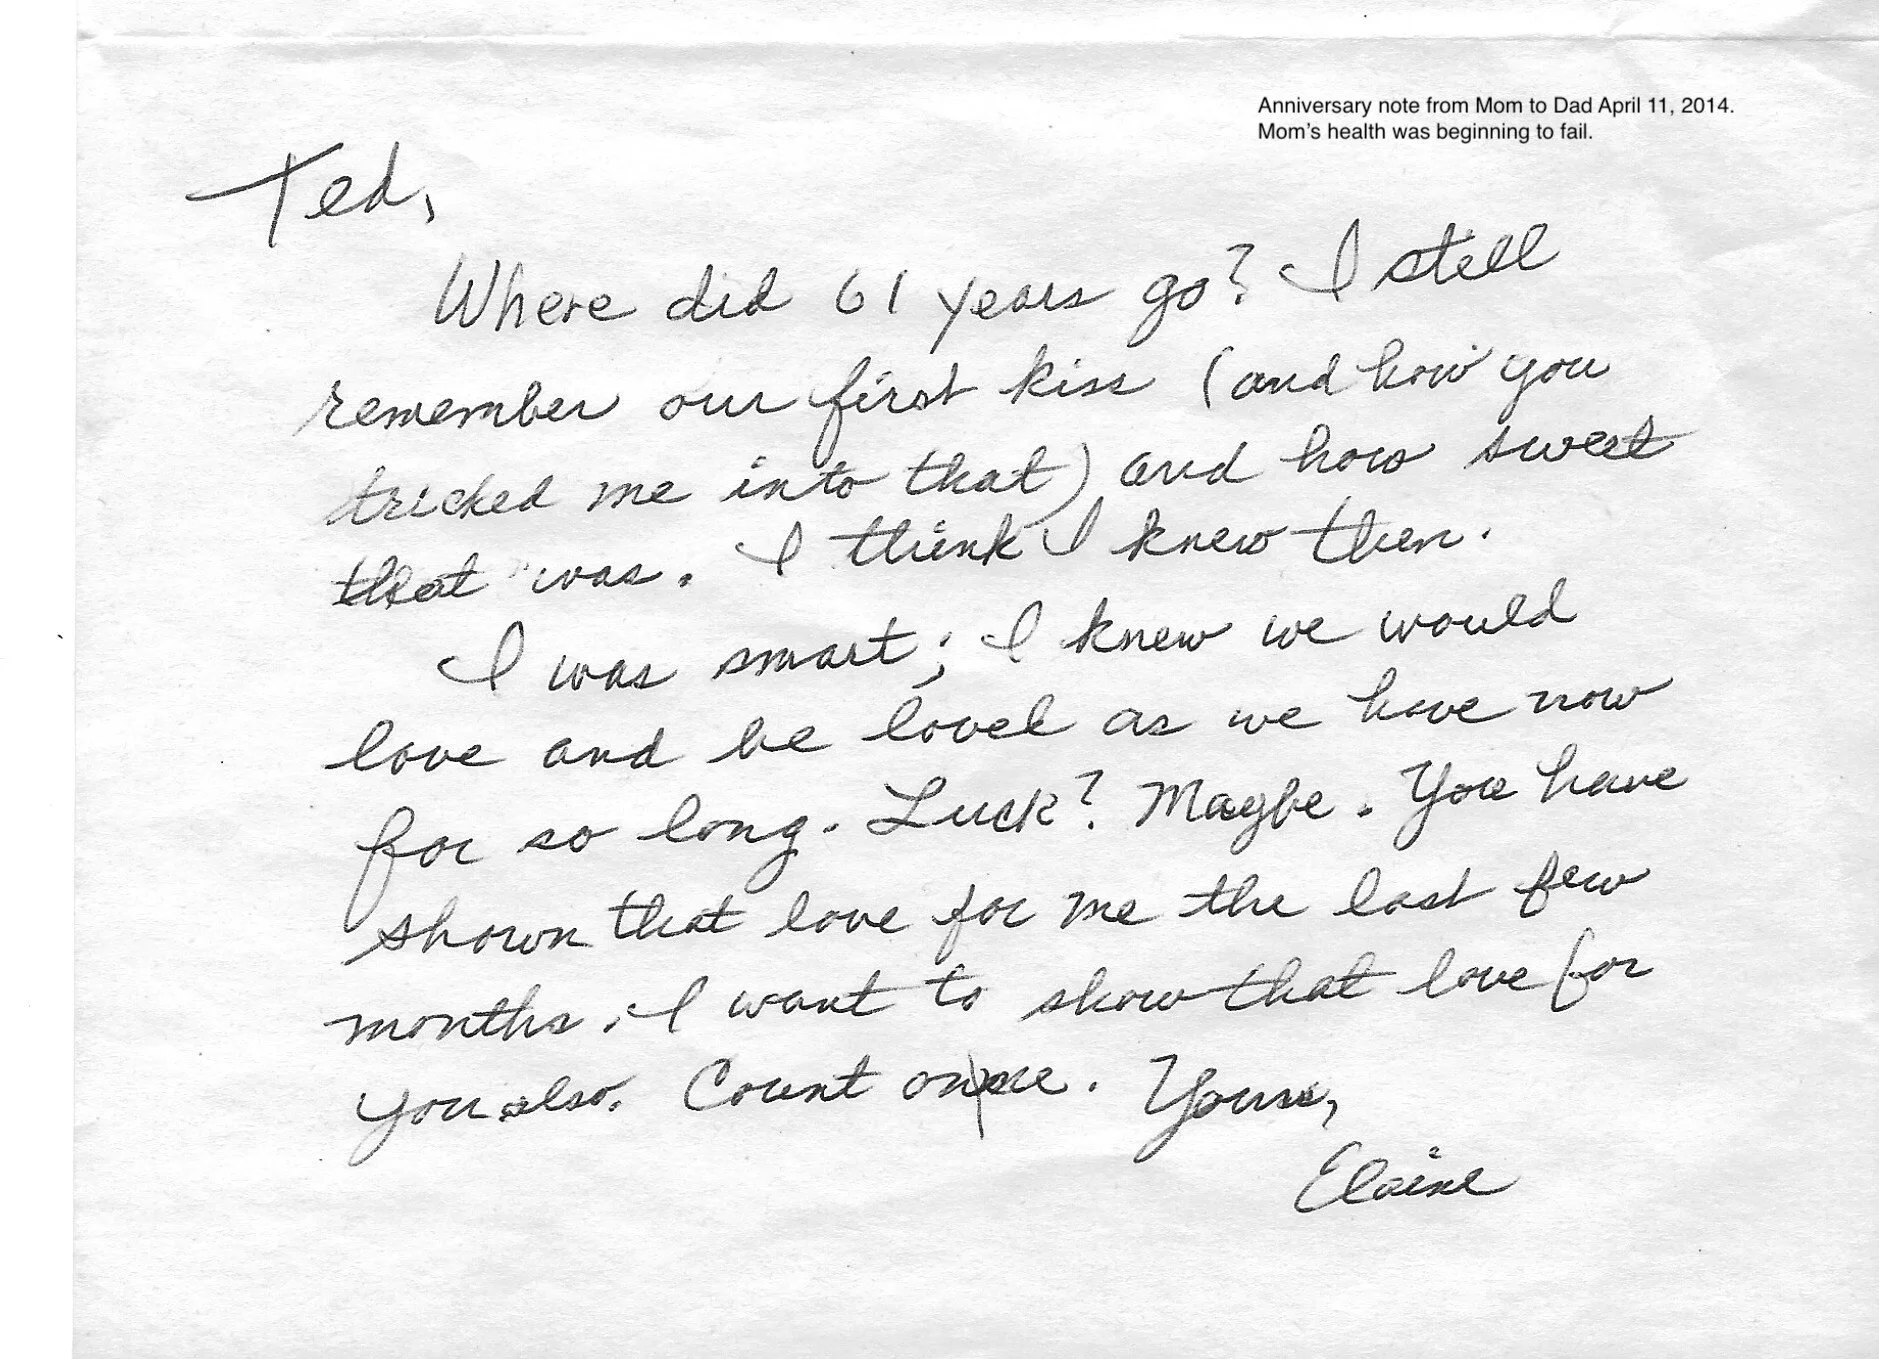 Anniversary note from Mom to Dad April 11, 2014.
Mom's health was beginning to fail.
Ted,
Where did 61 years go? I still
remember our first kiss (and how you
tricked me into that) and how sweet
that was. I think I knew then.
I was smart; I knew we would
love and be loved as we have now
for so long. Luck? Maybe. You have
shown that love for me the last few
months. I want to show that love for
you also. Count on me. Yours,
Elaine